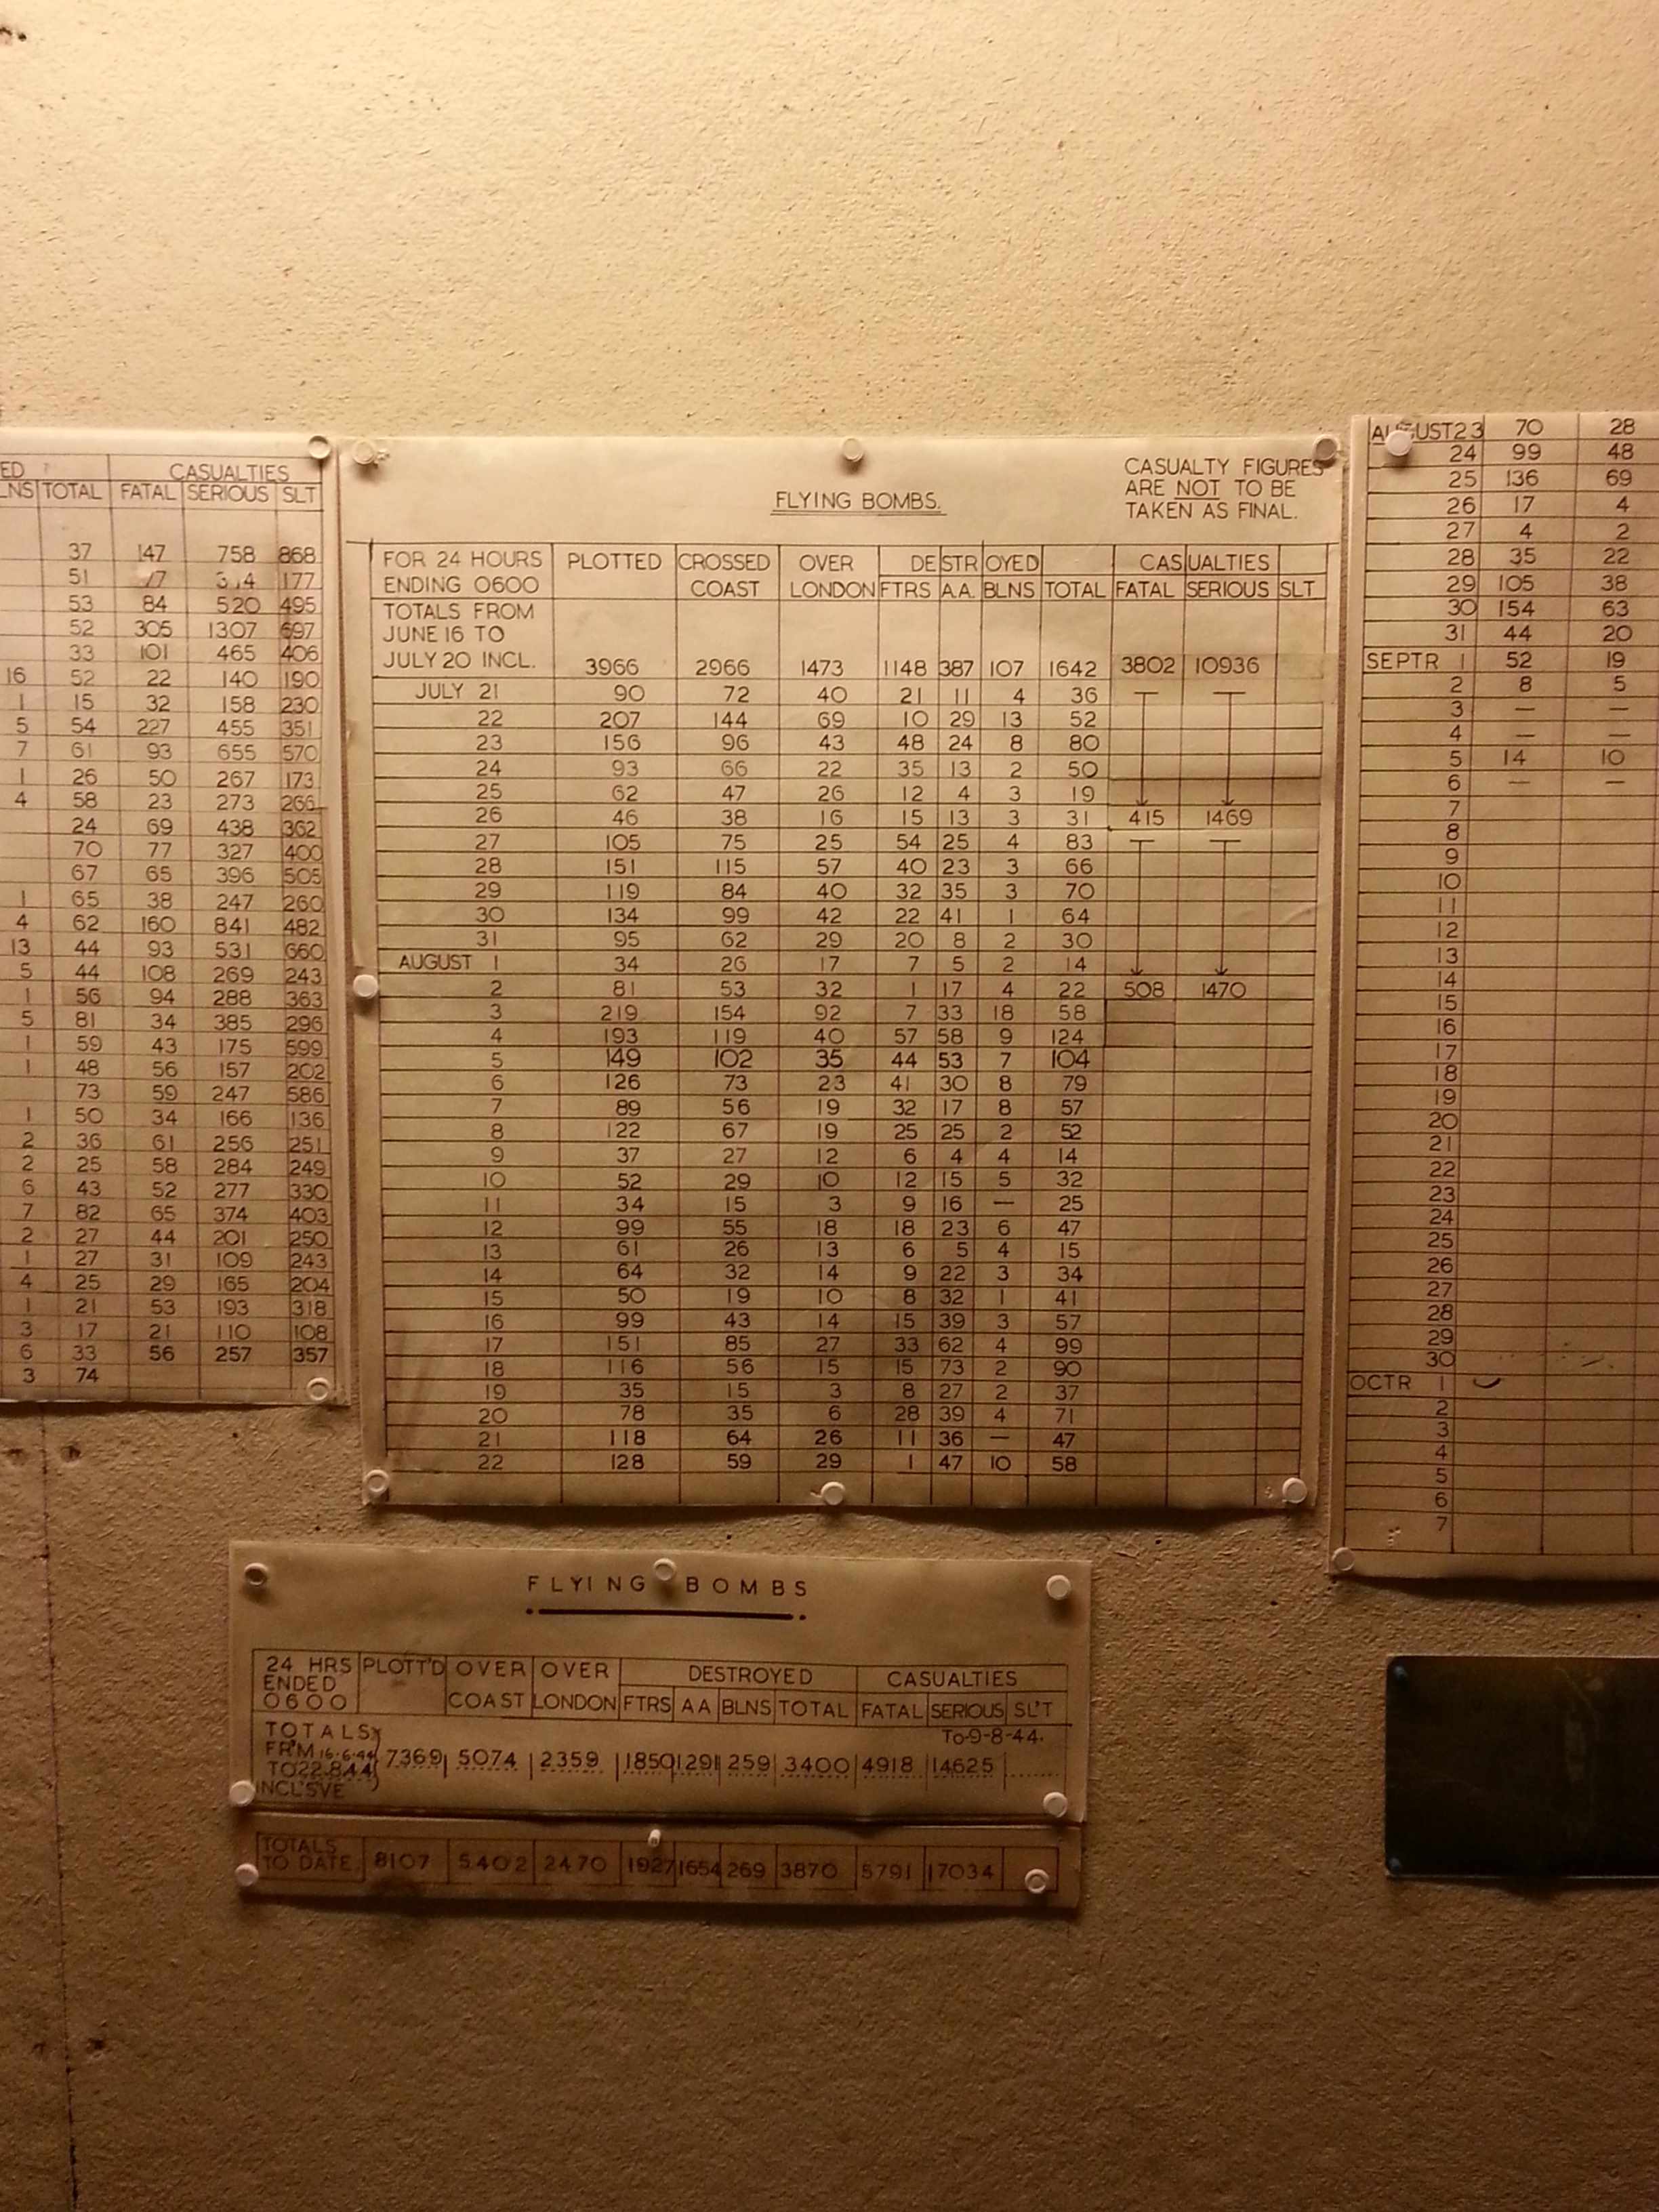 ED
CASUALTIES
LNS TOTAL FATAL SERIOUS SLT
37 147 758 868
51 177
53 84 520 495
52 305 1307 697
33 101 465 406
16 52 22 140 190
1 15 32 158 230
5 54 227 455 351
7 61 93 655 570
1 26 50 267 173
4 58 23 273 266
24 69 438 362
70 77 327 400
67 65 396 505
1 65 38 247 260
4 62 160 841 482
13 44 93 531 660
5 44 108 269 243
1 56 94 288 363
5 81 34 385 296
1 59 43 175 599
1 48 56 157 202
73 59 247 586
1 50 34 166 136
2 36 61 256 251
2 25 58 284 249
6 43 52 277 330
7 82 65 374 403
2 27 44 201 250
1 27 31 109 243
4 25 29 165 204
1 21 53 193 318
3 17 21 110 108
6 33 56 257 357
3 74
FLYING BOMBS.
CASUALTY FIGURES
ARE NOT TO BE
TAKEN AS FINAL.
FOR 24 HOURS PLOTTED CROSSED OVER DESTROYED CASUALTIES
ENDING 0600 COAST LONDON FTRS A.A. BLNS TOTAL FATAL SERIOUS SLT
TOTALS FROM
JUNE 16 TO
JULY 20 INCL. 3966 2966 1473 1148 387 107 1642 3802 10936
JULY 21 90 72 40 21 11 4 36
22 207 144 69 10 29 13 52
23 156 96 43 48 24 8 80
24 93 66 22 35 13 2 50
25 62 47 26 12 4 3 19
26 46 38 16 15 13 3 31 415 1469
27 105 75 25 54 25 4 83
28 151 115 57 40 23 3 66
29 119 84 40 32 35 3 70
30 134 99 42 22 41 1 64
31 95 62 29 20 8 2 30
AUGUST 1 34 26 17 7 5 2 14
2 81 53 32 1 17 4 22 508 1470
3 219 154 92 7 33 18 58
4 193 119 40 57 58 9 124
5 149 102 35 44 53 7 104
6 126 73 23 41 30 8 79
7 89 56 19 32 17 8 57
8 122 67 19 25 25 2 52
9 37 27 12 6 4 4 14
10 52 29 10 12 15 5 32
11 34 15 3 9 16 — 25
12 99 55 18 18 23 6 47
13 61 26 13 6 5 4 15
14 64 32 14 9 22 3 34
15 50 19 10 8 32 1 41
16 99 43 14 15 39 3 57
17 151 85 27 33 62 4 99
18 116 56 15 15 73 2 90
19 35 15 3 8 27 2 37
20 78 35 6 28 39 4 71
21 118 64 26 11 36 — 47
22 128 59 29 1 47 10 58
AUGUST 23 70 28
24 99 48
25 136 69
26 17 4
27 4 2
28 35 22
29 105 38
30 154 63
31 44 20
SEPTR 1 52 19
2 8 5
3 — —
4 — —
5 14 10
6 — —
7
8
9
10
11
12
13
14
15
16
17
18
19
20
21
22
23
24
25
26
27
28
29
30
OCTR 1
2
3
4
5
6
7
FLYING BOMBS
24 HRS PLOTT'D OVER OVER DESTROYED CASUALTIES
ENDED
0600 COAST LONDON FTRS AA BLNS TOTAL FATAL SERIOUS SL'T
TOTALS To-9-8-44.
FR'M 16·6·44 7369 5074 2359 1850 1291 259 3400 4918 14625
TO 22·8·44
INCL'SVE
TOTALS
TO DATE. 8107 5402 2470 1927 1654 269 3870 5791 17034